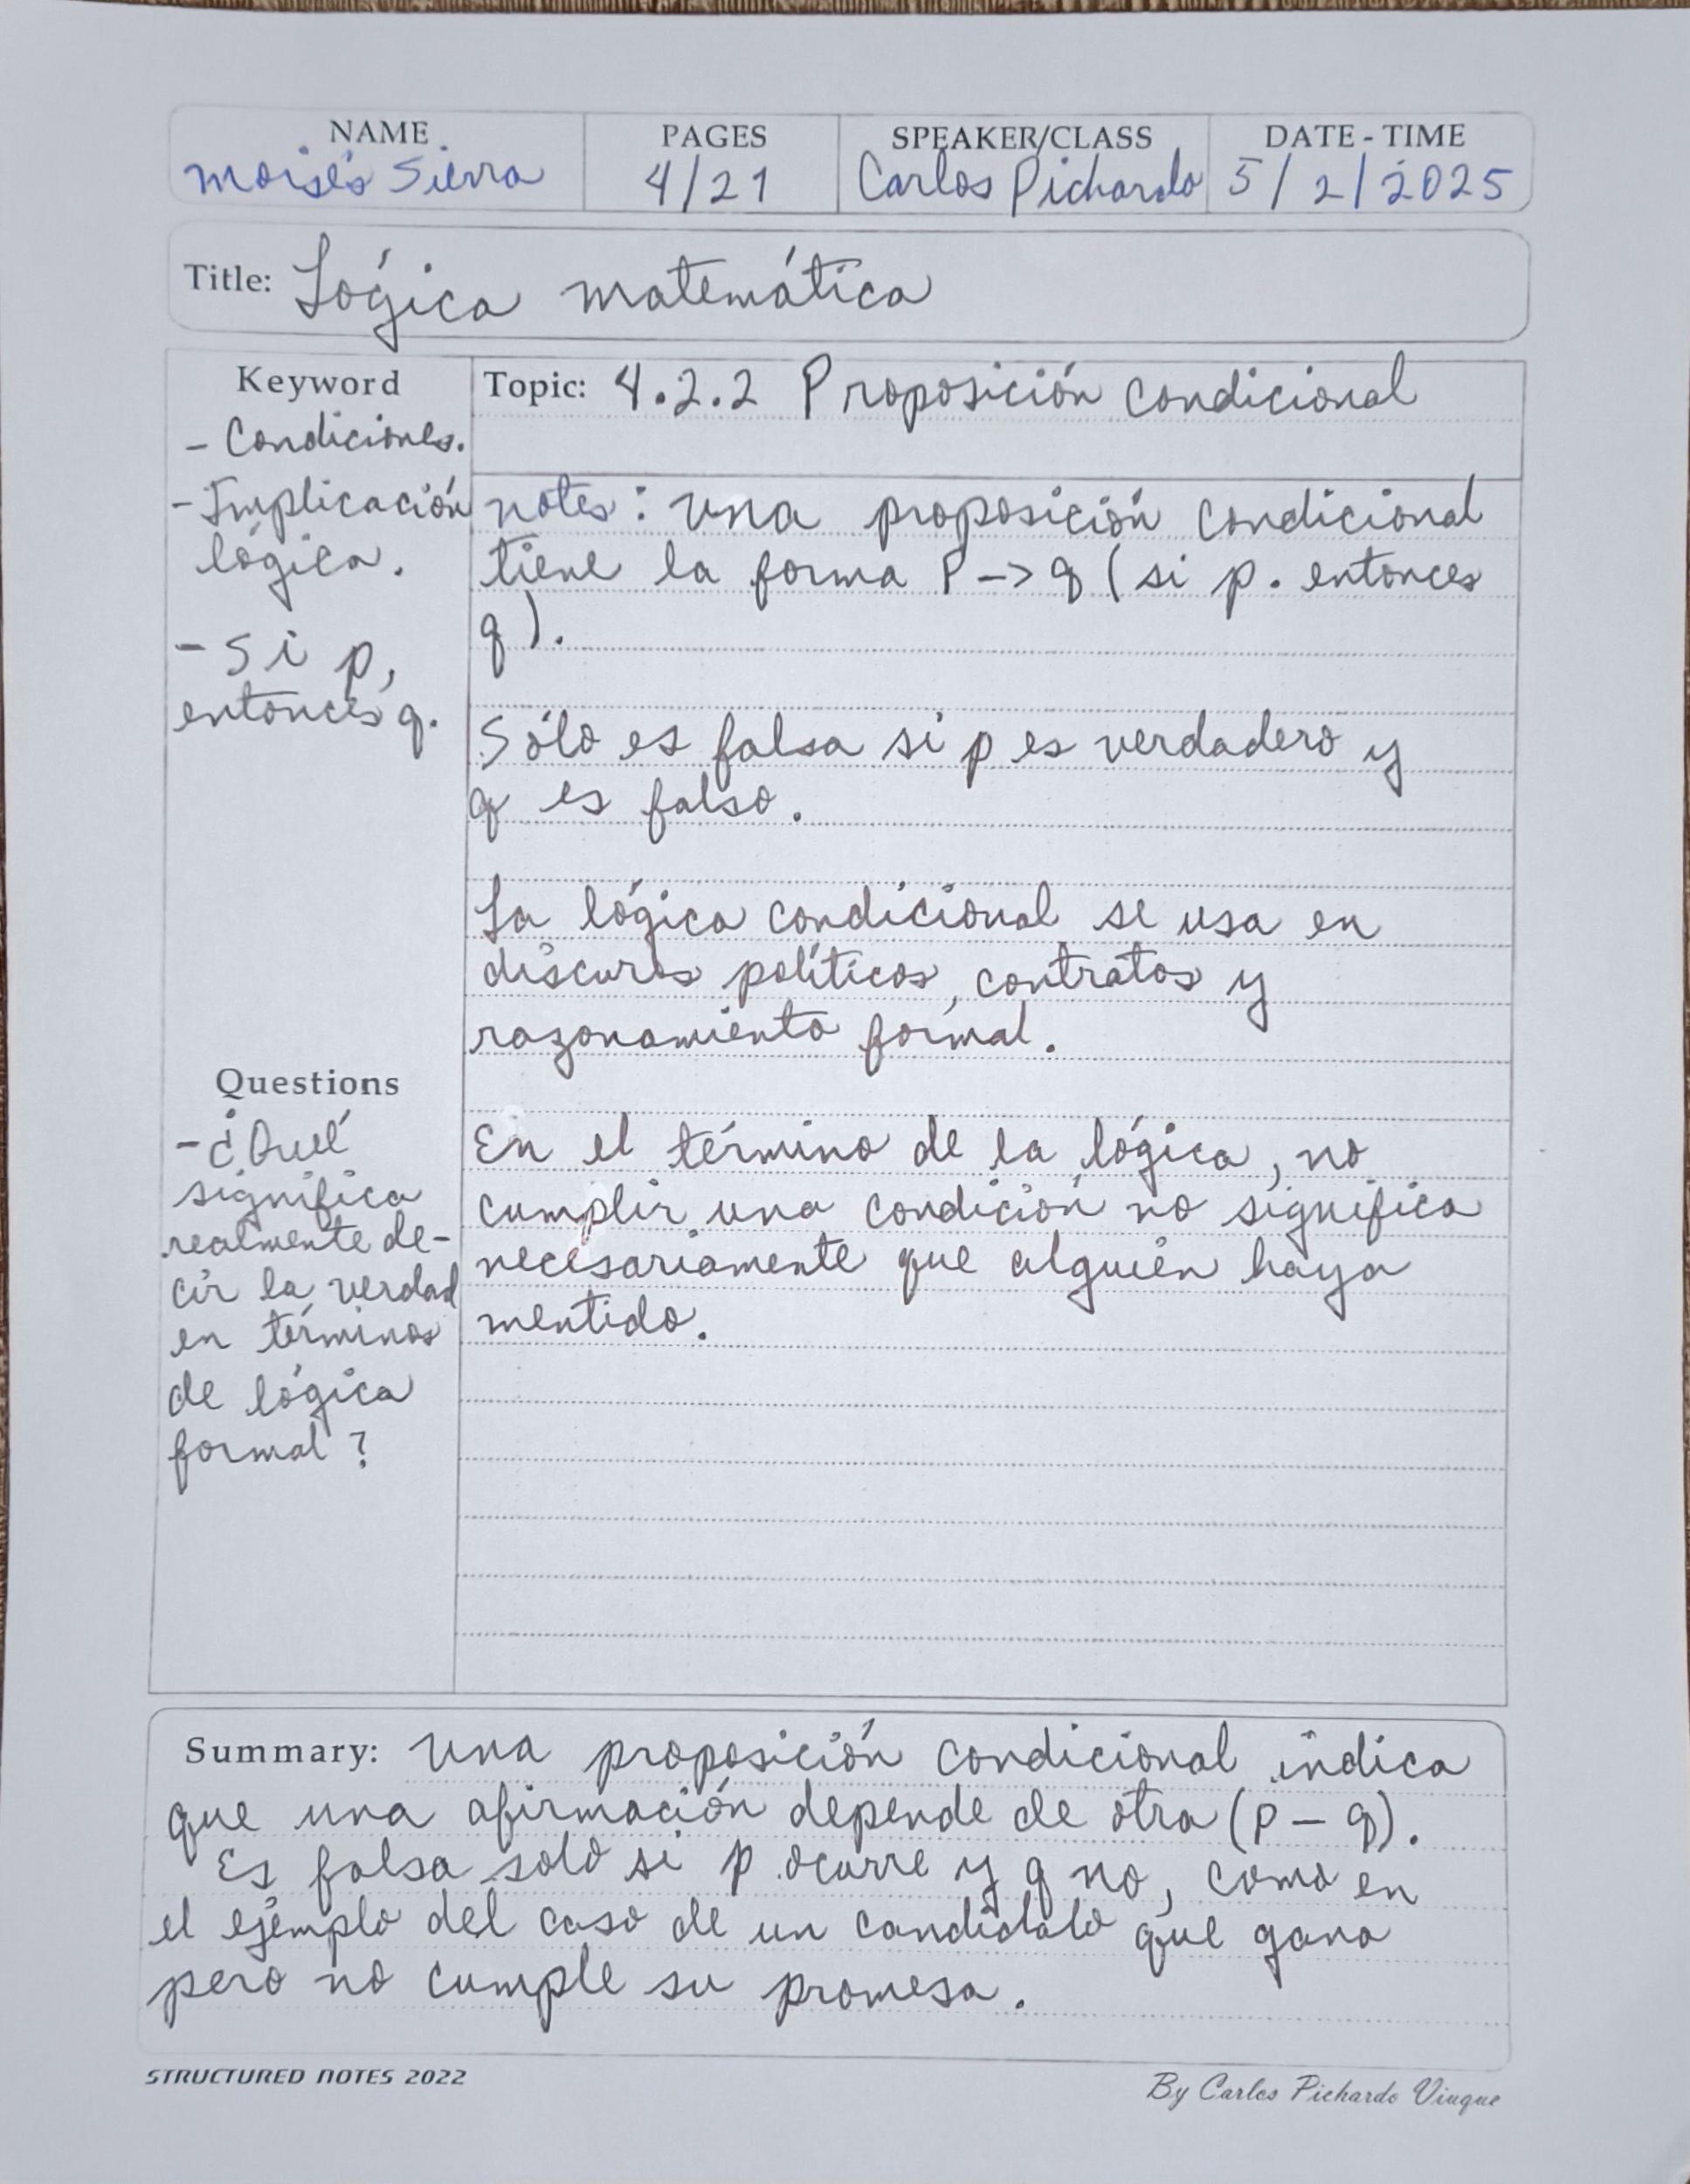 NAME PAGES SPEAKER/CLASS DATE - TIME
Moisés Sierra 4/21 Carlos Pichardo 5/2/2025
Title: Lógica matemática
Keyword
- Condiciones.
- Implicación
lógica.
- Si p,
entonces q.
Topic: 4.2.2 Proposición condicional
notes: una proposición condicional
tiene la forma P -> q (si p. entonces
q).
Sólo es falsa si p es verdadero y
q es falso.
La lógica condicional se usa en
discursos políticos, contratos y
razonamiento formal.
En el término de la lógica, no
cumplir una condición no significa
necesariamente que alguien haya
mentido.
Questions
- ¿Qué
significa
realmente de-
cir la verdad
en términos
de lógica
formal?
Summary: Una proposición condicional indica
que una afirmación depende de otra (P - q).
Es falsa solo si p ocurre y q no, como en
el ejemplo del caso de un candidato que gana
pero no cumple su promesa.
STRUCTURED NOTES 2022
By Carlos Pichardo Viuque